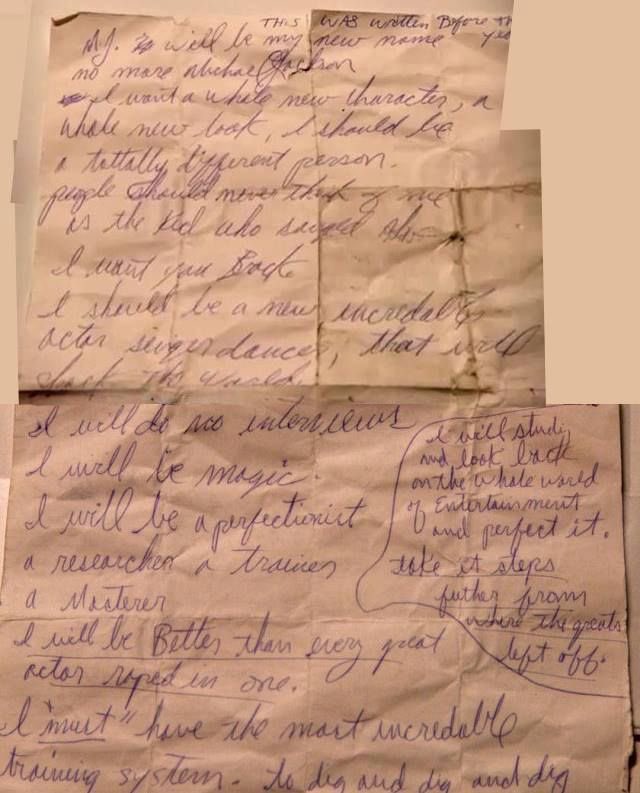 THIS WAS written Before the
MJ. will be my new name
no more Michael Jackson
I want a whole new character, a
whole new look, I should be
a tottally different person.
people should never think of me
as the kid who sanged ABC
I want you Back
I should be a new, incredable
actor singer dancer, that will
shock the world.
I will do no interviews
I will be magic.
I will be a perfectionist
a researcher a trainer
a Masterer
I will be Better than every great
actor roped in one.
I "must" have the most incredable
training system. to dig and dig and dig
I will study
and look back
on the whole world
of Entertainment
and perfect it.
take it steps
futher from
where the greats
left off.